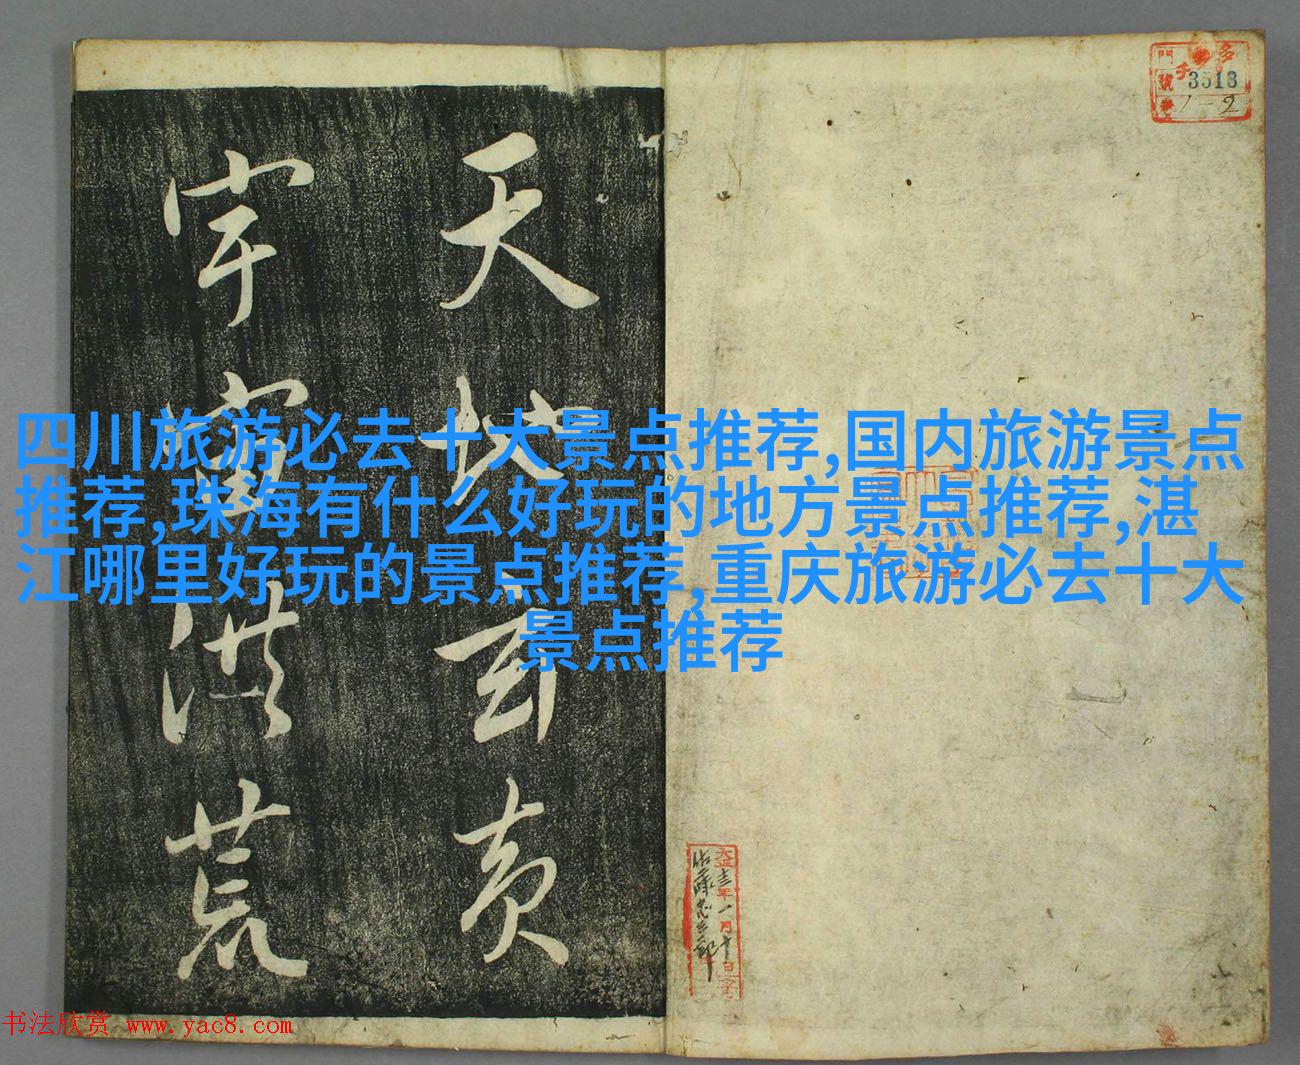 天地玄黄
宇宙洪荒
四川旅游必去十大景点推荐,国内旅游景点
推荐,珠海有什么好玩的地方景点推荐,湛
江哪里好玩的景点推荐,重庆旅游必去十大
景点推荐
3513
1-2
大正十三年一月十日
书法欣赏 www.yac8.com